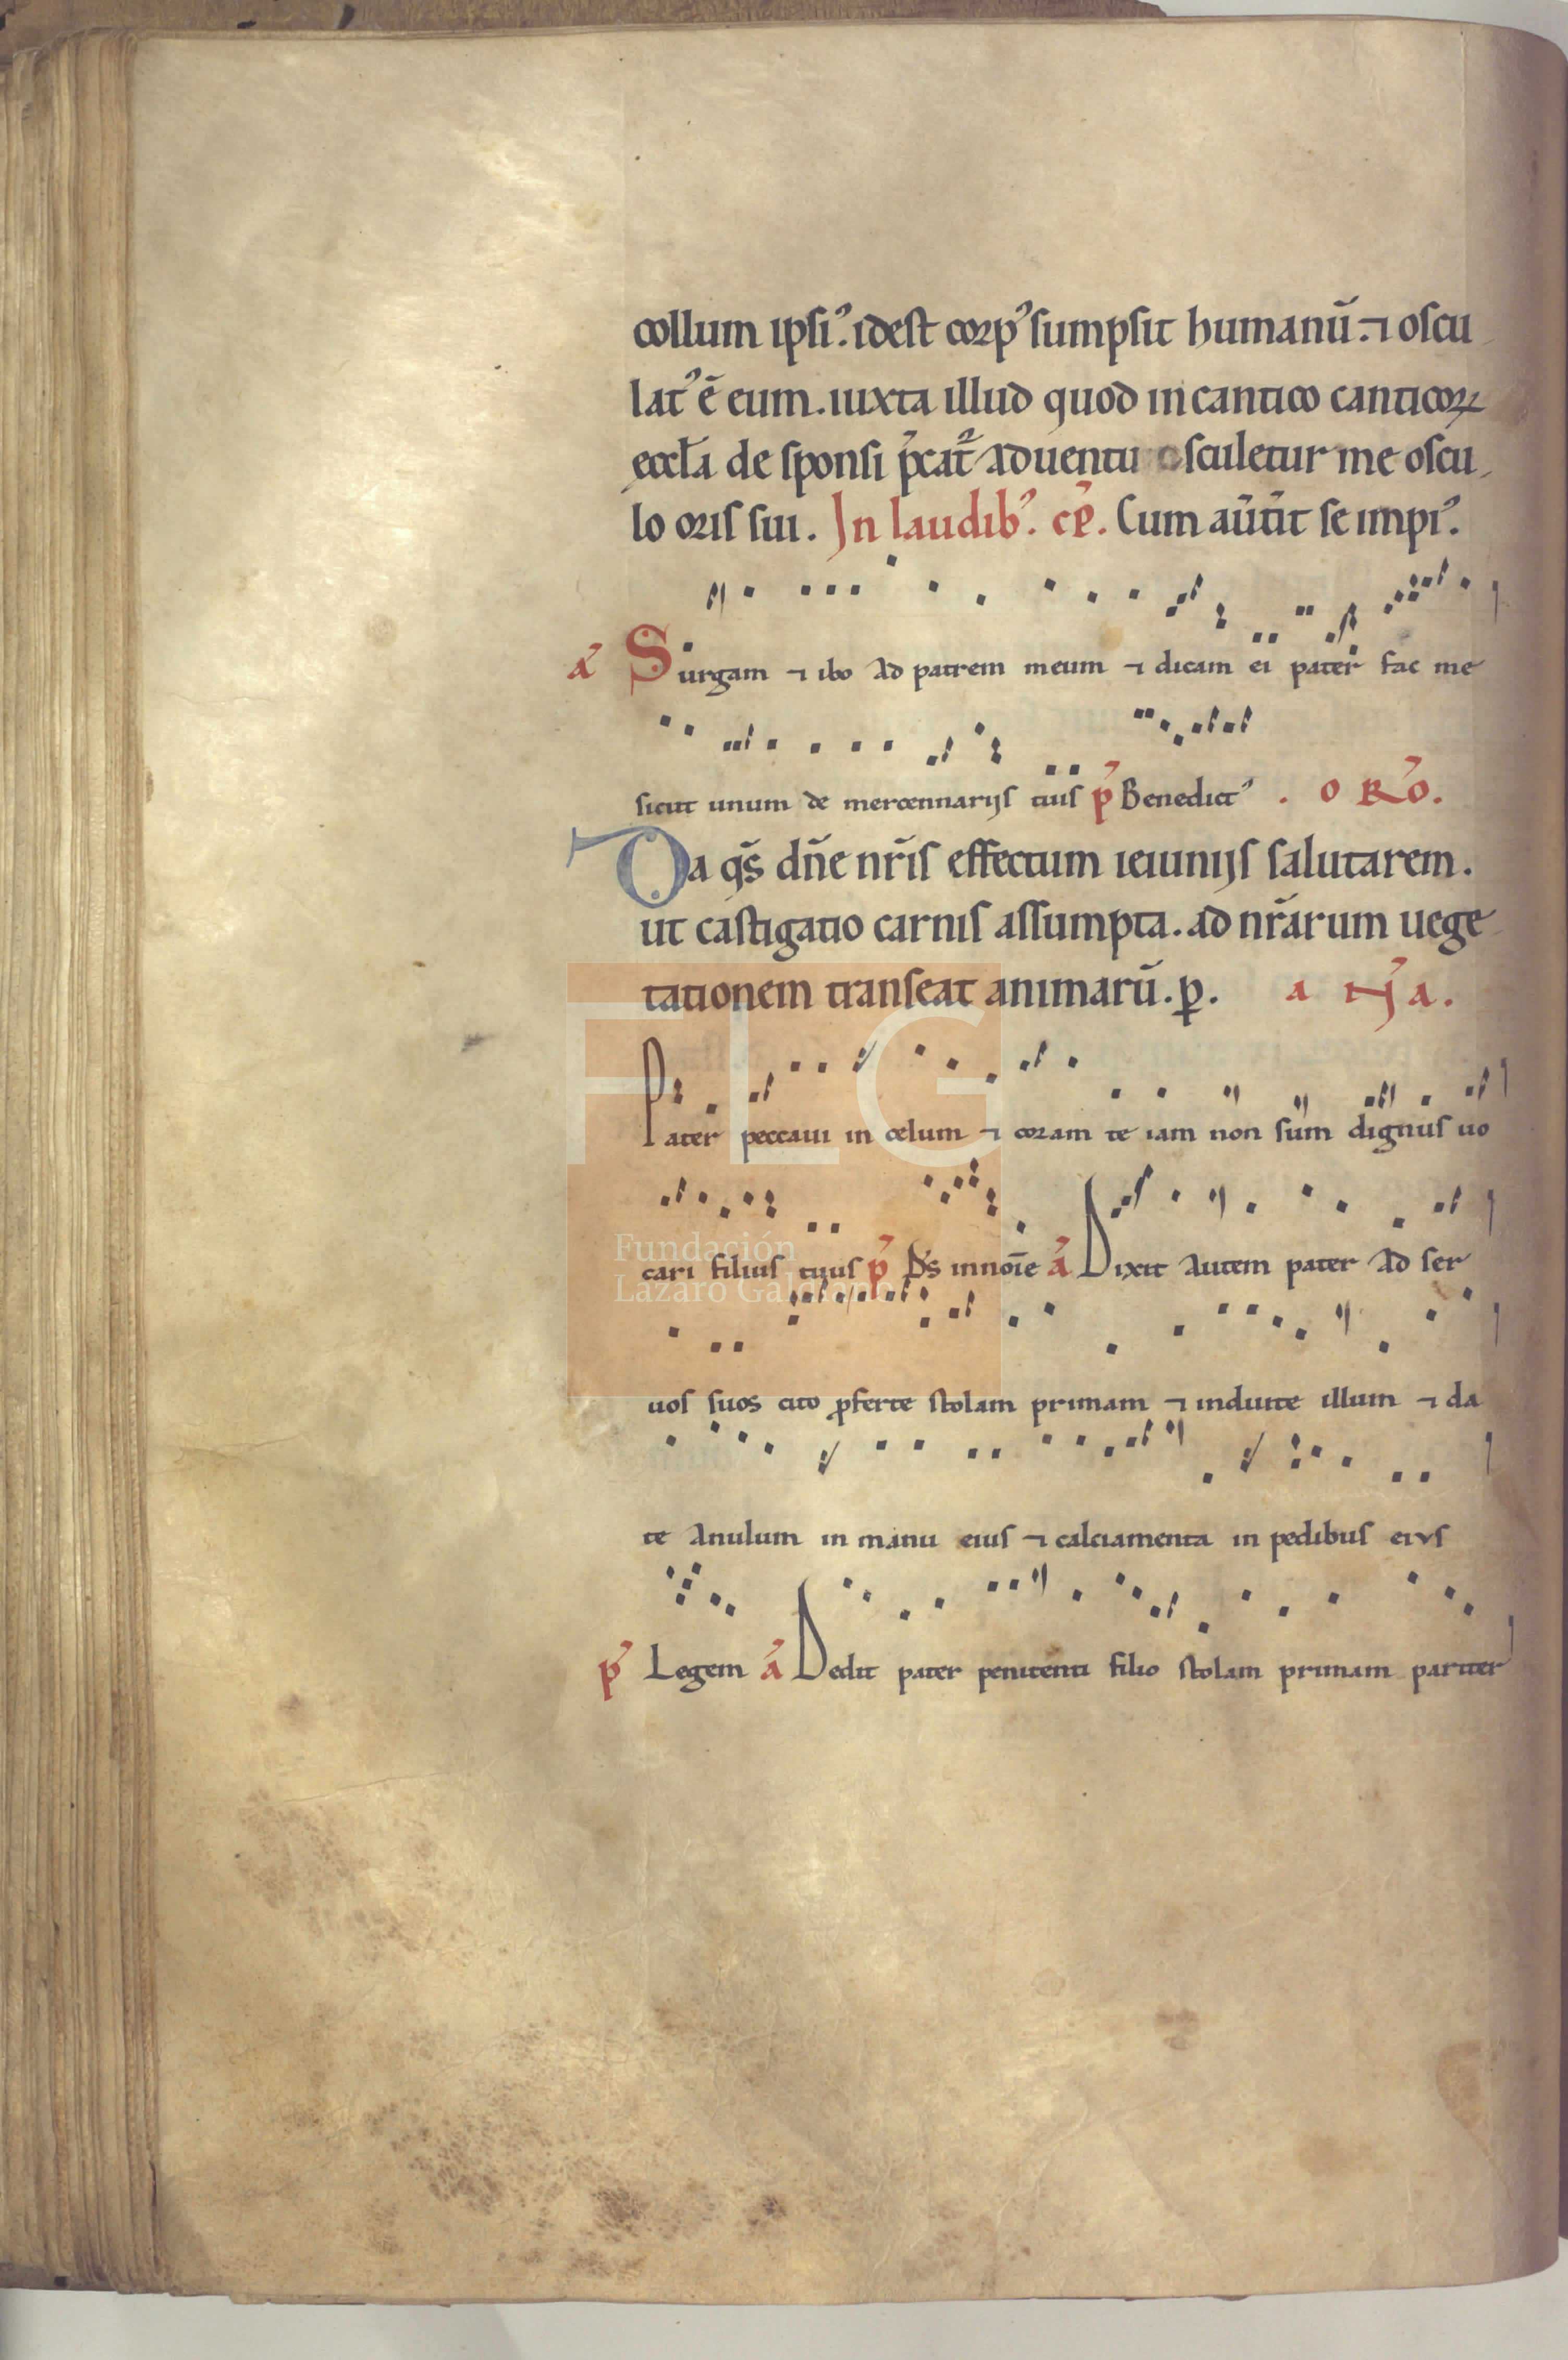 collum ipsiꝰ. idest corpꝰ sumpsit humanū. ⁊ oscu
latꝰ ē eum. iuxta illud quod in cantico canticoꝝ
eccl̄a de sponsi p̄cat᷑ aduentu osculetur me oscu
lo oris sui. In laudibꝰ. cp̄. Cum aūt̄it se impiꝰ.
a᷑ Surgam ⁊ ibo ad patrem meum ⁊ dicam ei pater fac me
sicut unum de mercennarijs tuis p᷑ Benedictꝰ. ORO.
Da q̄s dn̄e nr̄is effectum ieiunijs salutarem.
ut castigatio carnis assumpta. ad nr̄arum uege
tationem transeat animarū. ꝑ. aN̄a.
Pater peccaui in celum ⁊ coram te iam non sum dignus uo
cari filius tuus p᷑ Ds̄ in noīe a᷑ Dixit autem pater ad ser
uos suos cito ꝓferte stolam primam ⁊ induite illum ⁊ da
te anulum in manu eius ⁊ calciamenta in pedibus eius
p᷑ Legem a᷑ Dedit pater penitenti filio stolam primam pariter
FLG
Fundación
Lázaro Galdiano